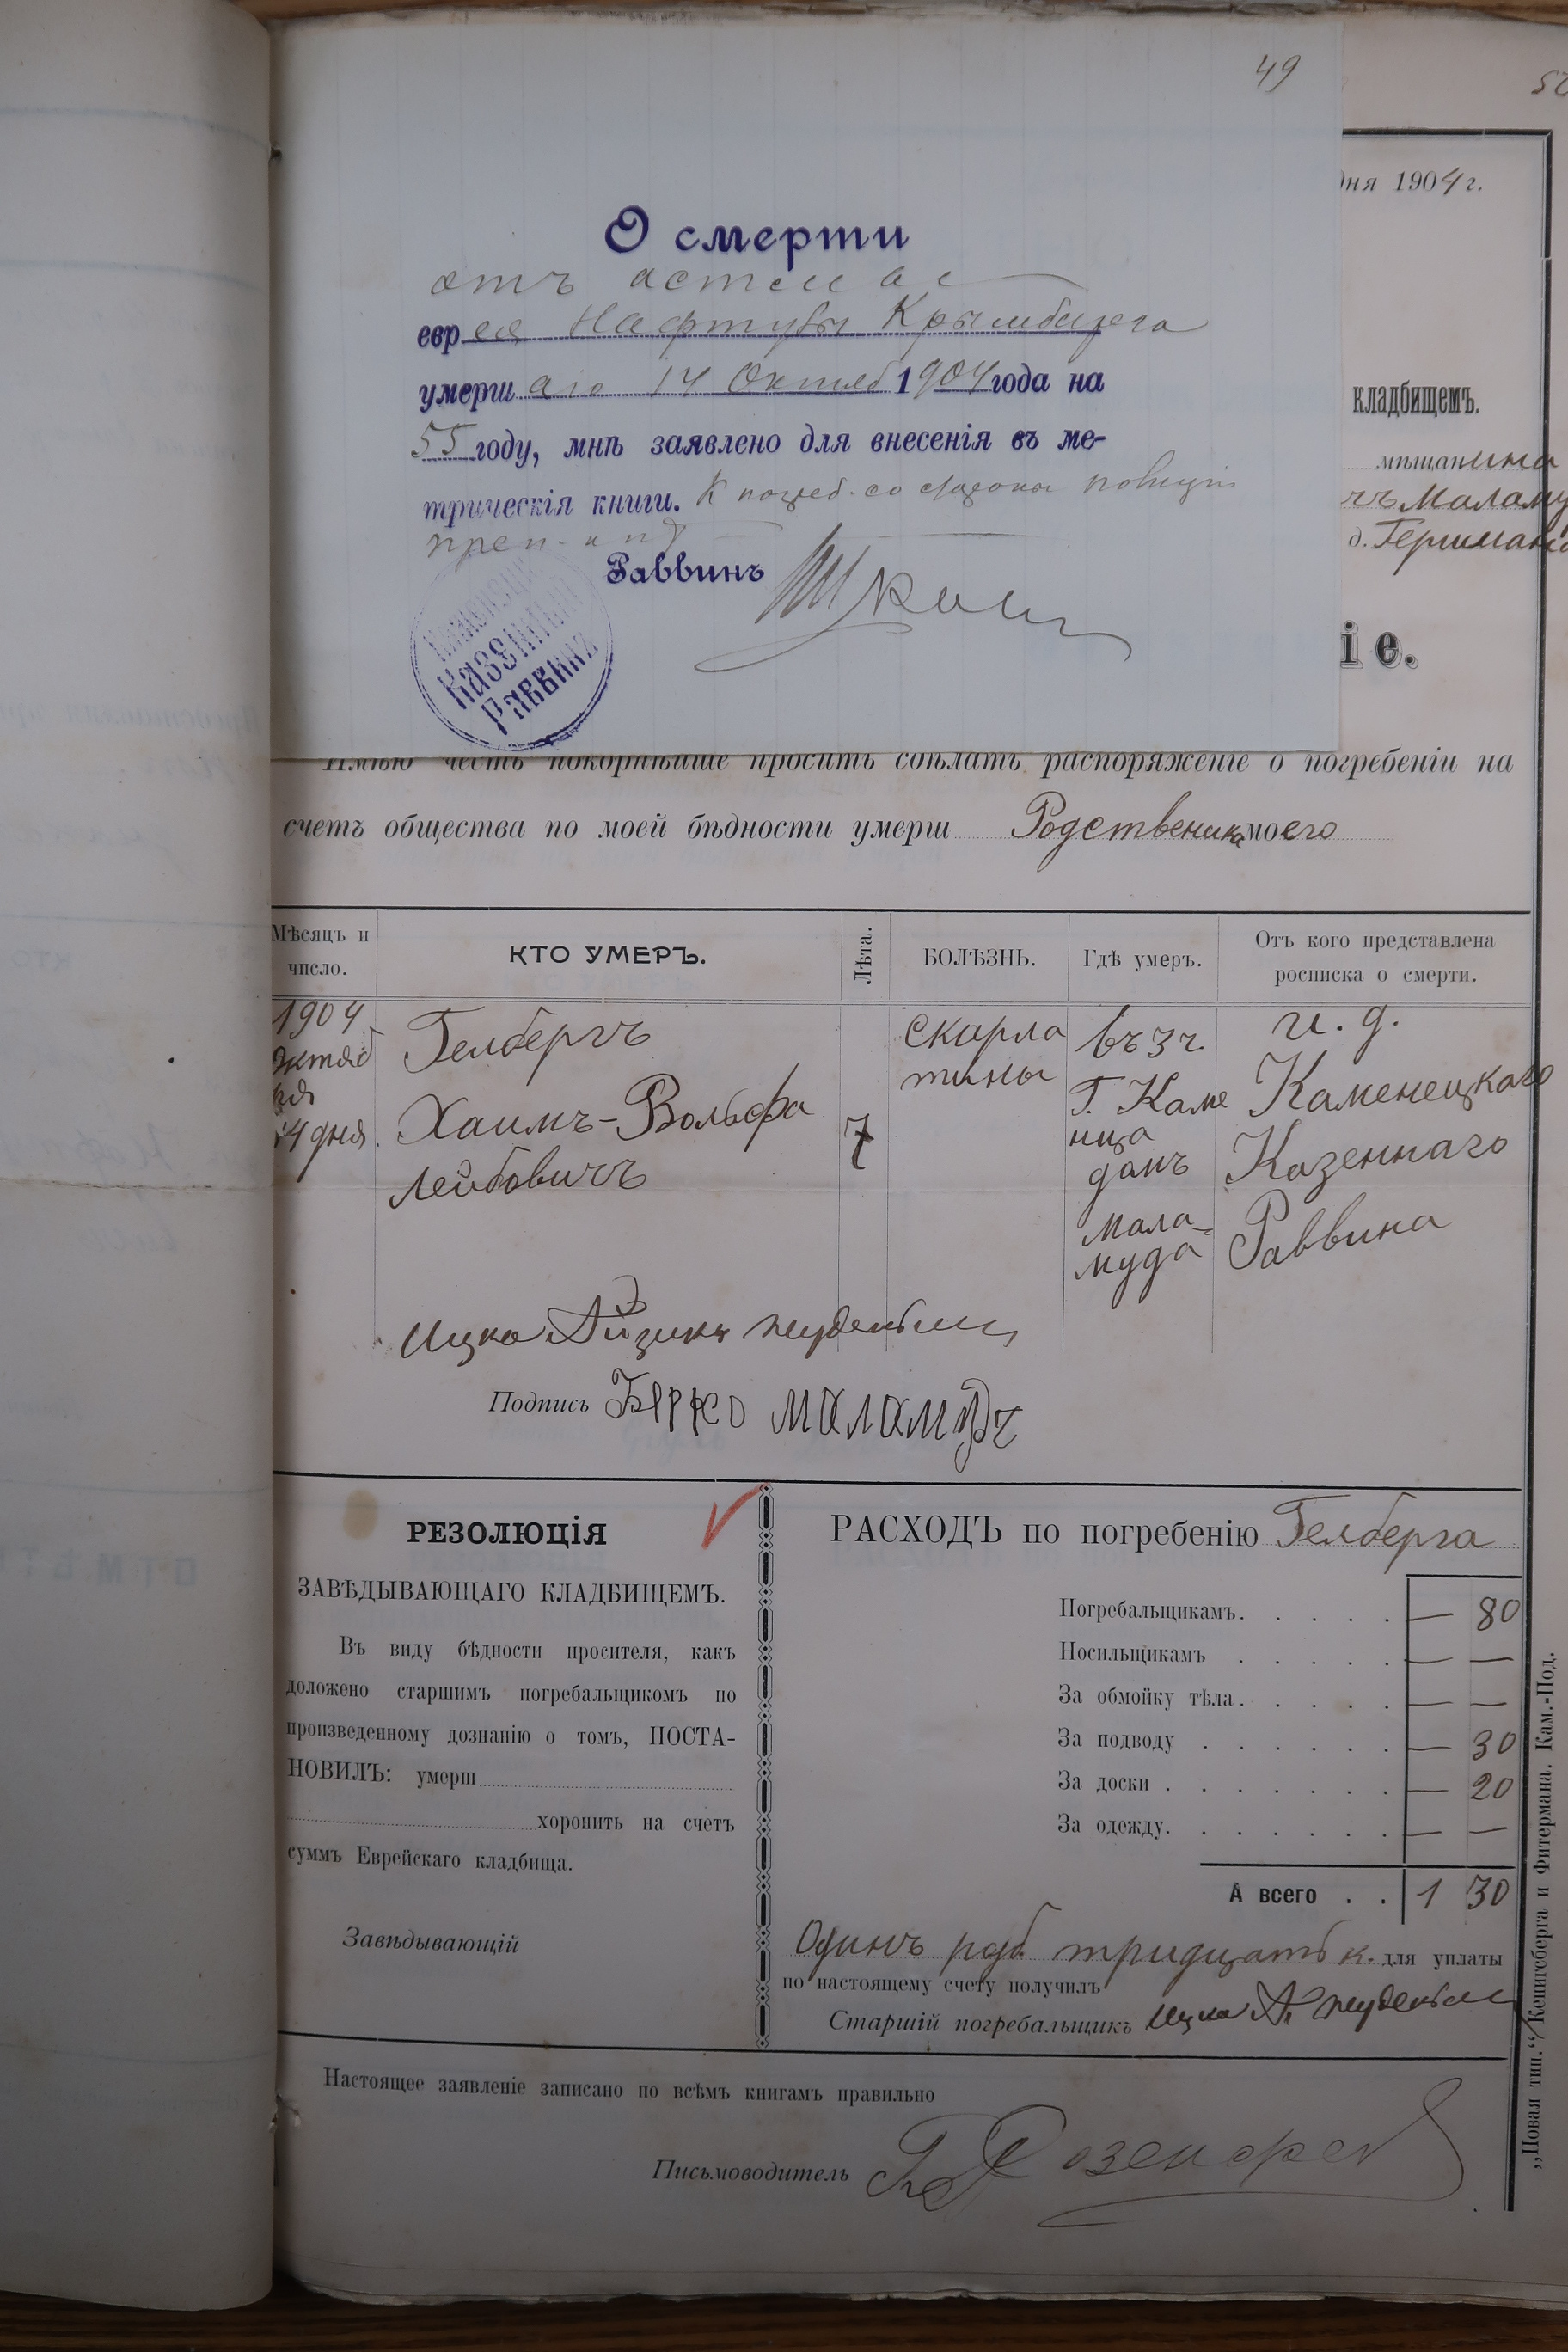 49
52
О смерти
отъ астмы
еврея Нафтулы Крымберга
умершаго 14 Октяб 1904 года на
55 году, мнѣ заявлено для внесенія въ ме-
трическія книги. К погреб. со стороны полиціи
преп. н
Раввинъ
Казенный
Раввинъ
дня 1904 г.
кладбищемъ.
мѣщанина
чъ Маламу
д. Гершмана
іе.
Имѣю честь покорнѣйше просить сдѣлать распоряженіе о погребеніи на
счетъ общества по моей бѣдности умерш Родственика моего
Мѣсяцъ и число.
КТО УМЕРЪ.
Лѣта.
БОЛѢЗНЬ.
Гдѣ умеръ.
Отъ кого представлена росписка о смерти.
1904
октяб
ря
14 дня.
Гелбергъ
Хаимъ-Вольфа
Лейбовичъ
7
Скарла
тины
въ 3 ч.
Г. Каме
ница
домъ
Мала-
муда
и. д.
Каменецкаго
Казеннаго
Раввина
Ицко Айзикъ
Подпись Берко Маламудъ
РЕЗОЛЮЦІЯ
ЗАВѢДЫВАЮЩАГО КЛАДБИЩЕМЪ.
Въ виду бѣдности просителя, какъ
доложено старшимъ погребальщикомъ по
произведенному дознанію о томъ, ПОСТА-
НОВИЛЪ: умерш
хоронить на счетъ
суммъ Еврейскаго кладбища.
Завѣдывающій
РАСХОДЪ по погребенію Гелберга
Погребальщикамъ. . . . . — 80
Носильщикамъ . . . . . — —
За обмойку тѣла. . . . . — —
За подводу . . . . . . — 30
За доски . . . . . . . — 20
За одежду. . . . . . . — —
А всего . . 1 30
Одинъ руб. тридцать к. для уплаты
по настоящему счету получилъ
Старшій погребальщикъ Ицко А.
Настоящее заявленіе записано по всѣмъ книгамъ правильно
Письмоводитель Розенфел
„Новая тип.“ Кенигсберга и Фитермана. Кам.-Под.